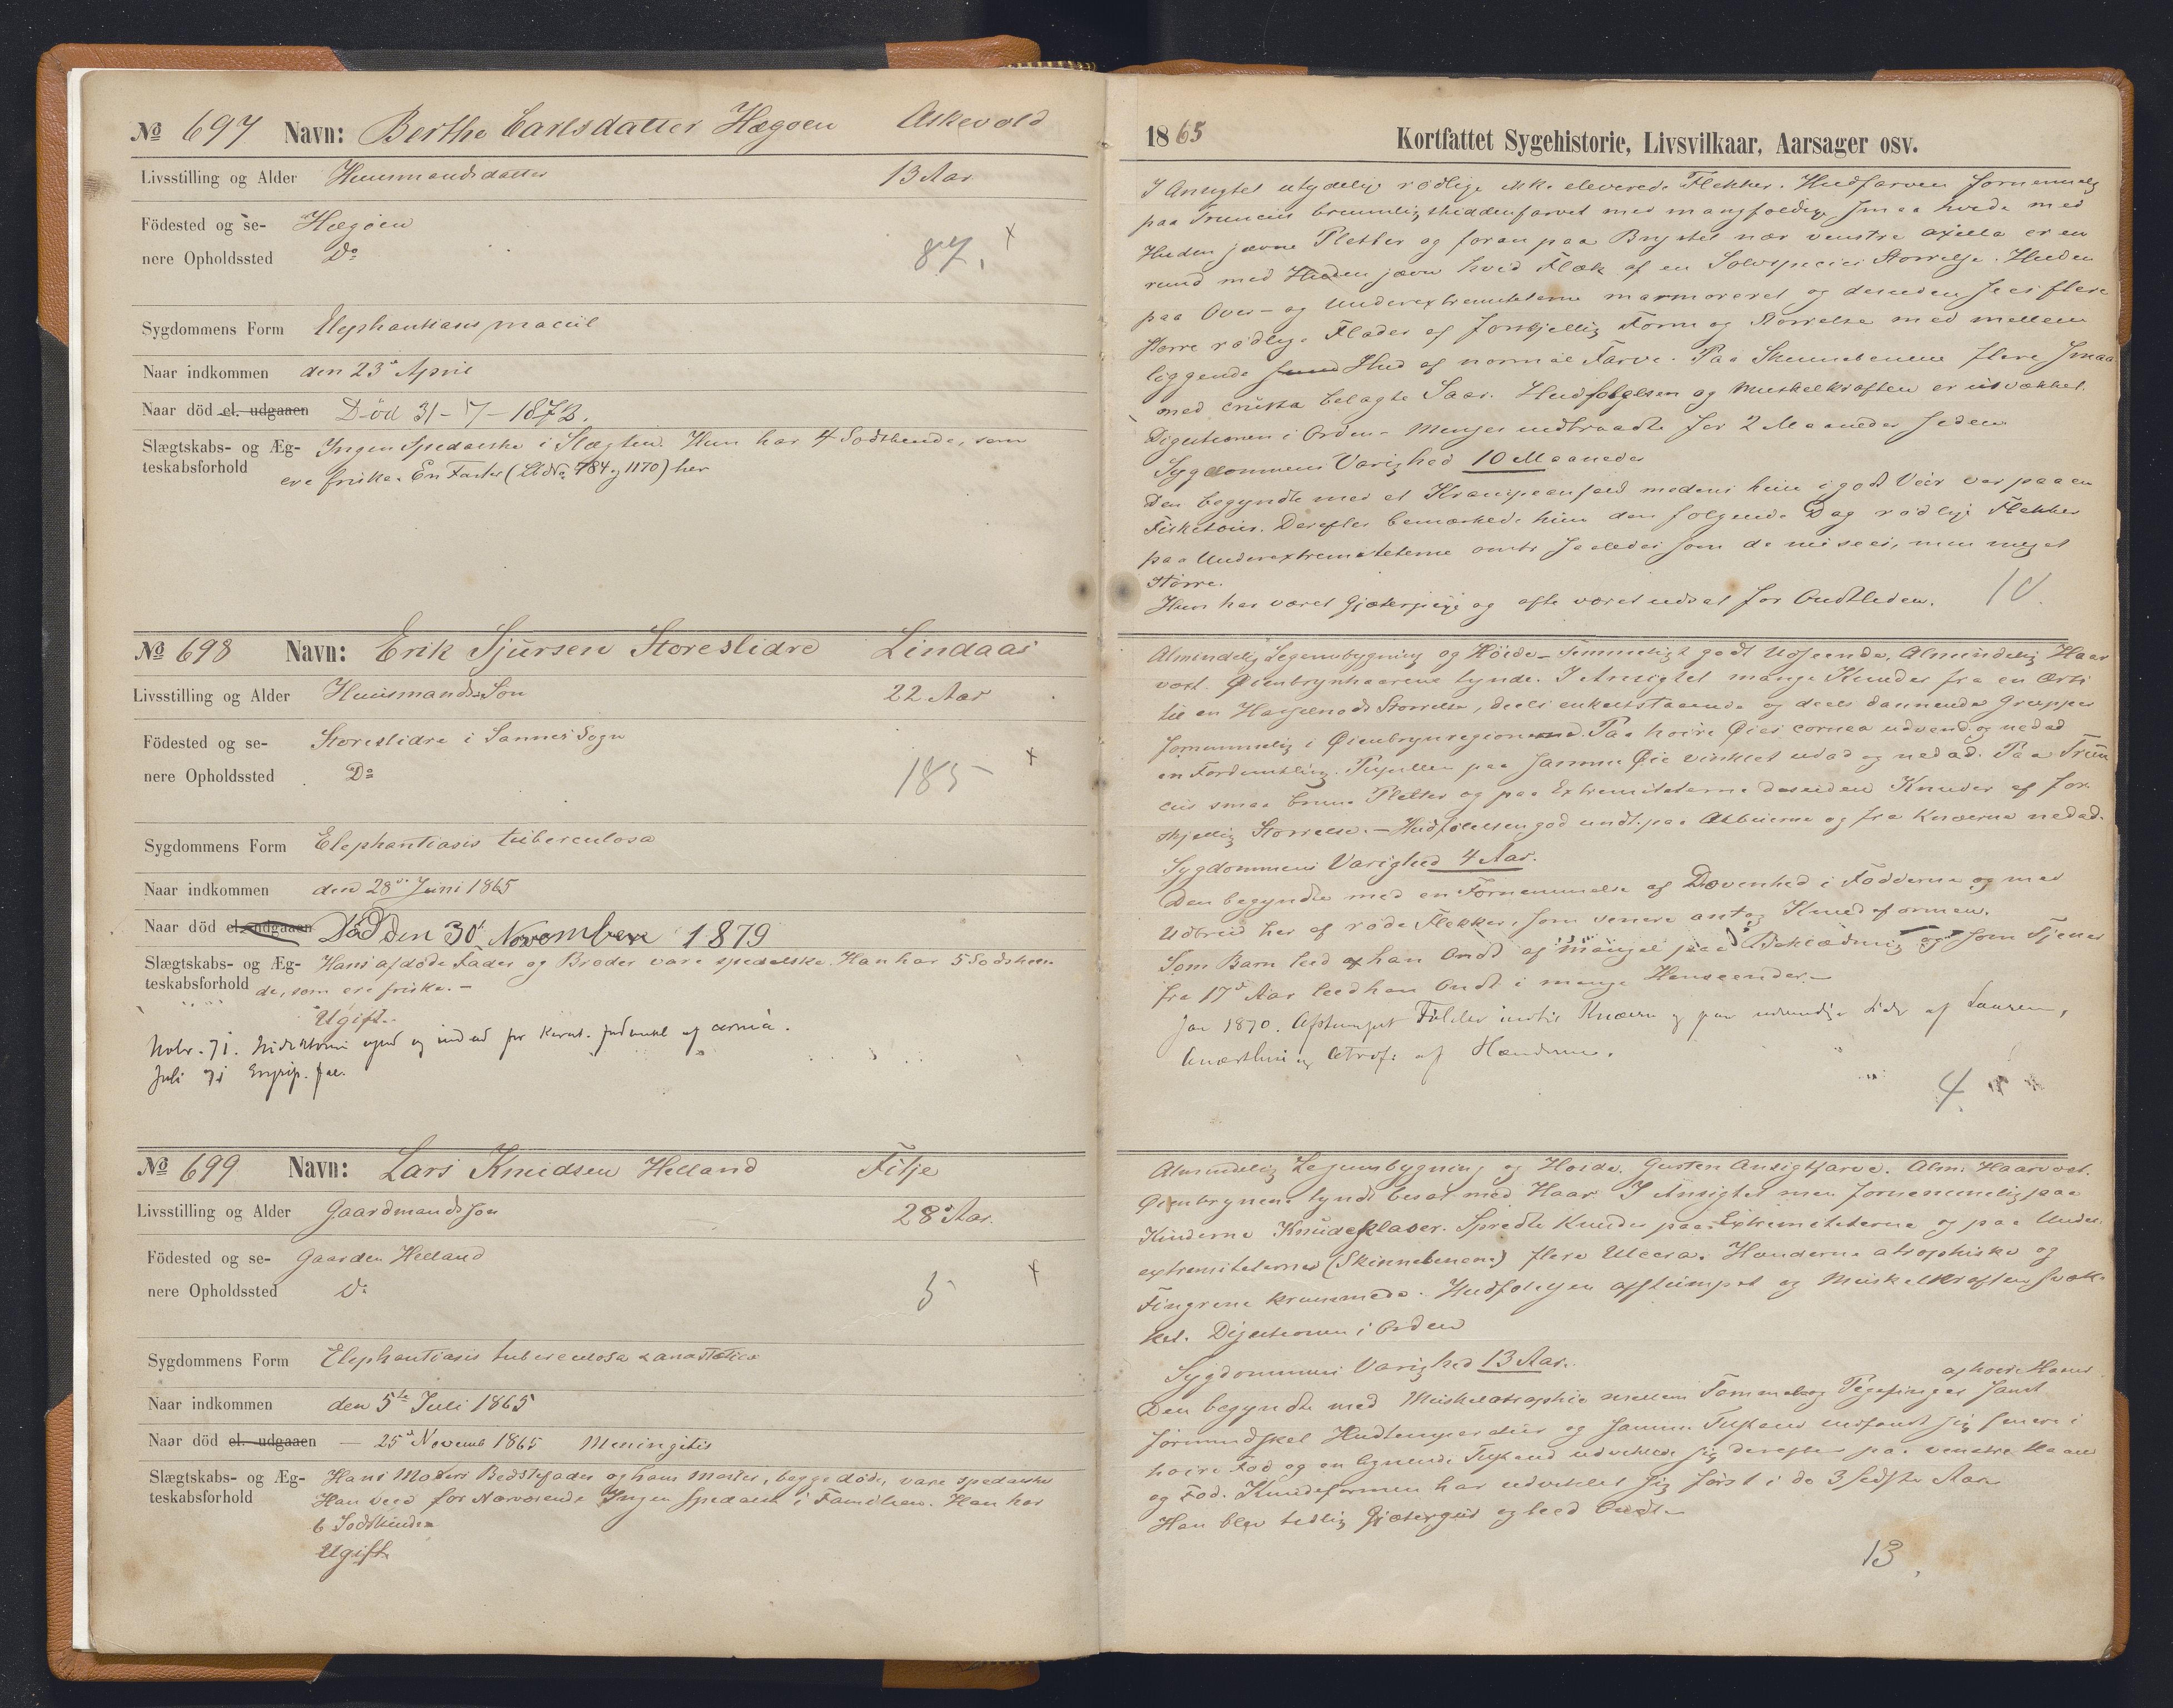 No 697 Navn: Berthe Carlsdatter Hægøen Askevold
Livsstilling og Alder Huusmandsdatter 13 Aar
Födested og se- Hægöen
nere Opholdssted Do 87. +
Sygdommens Form Elephantiasis macul
Naar indkommen den 23de April
Naar död el. udgaaen Död 31-7-1872.
Slægtskabs- og Æg- Ingen Spedalske i Slægten. Hun har 4 Sødskende, som
teskabsforhold ere friske. En Faster (LbNo 784 og 1170) her
No 698 Navn: Erik Sjursen Storeslidre Lindaas
Livsstilling og Alder Huusmands Søn 22 Aar
Födested og se- Storeslidre i Sannes Sogn
nere Opholdssted Do 185 +
Sygdommens Form Elephantiasis tuberculosa
Naar indkommen den 28de Juni 1865
Naar död el. udgaaen Död den 30te November 1879
Slægtskabs- og Æg- Hans afdøde Fader og Broder vare spedalske. Han har 5 Sødsken-
teskabsforhold de, som ere friske. -
Ugift.
Novbr. 71. Iridektomi opad og indad for
Juli 71
No 699 Navn: Lars Knudsen Helland Fitje
Livsstilling og Alder Gaardmands Søn 28 Aar.
Födested og se- Gaarden Helland
nere Opholdssted Do 5 +
Sygdommens Form Elephantiasis tuberculosa & anæsthetica
Naar indkommen den 5te Juli 1865
Naar död el. udgaaen — 25de Novemb 1865 Meningitis
Slægtskabs- og Æg- Hans Moders Bedstefader og hans Moster, begge døde, vare spedalske
teskabsforhold Han veed for Nærværende Ingen spedalsk i Familien. Han har
6 Sødskende
Ugift
1865 Kortfattet Sygehistorie, Livsvilkaar, Aarsager osv.
I Ansigtet utydelig rødlige ikke eleverede Flekker. Hudfarven fornemmelig
paa Truncus brunlig skiddenfarvet med mangfoldige smaa hvide med
Huden jævne Pletter og foran paa Brystet nær venstre axilla er en
rund med Huden jævn hvid Flæk af en Sølvspecies Størrelse. Huden
paa Over- og Underextremiteterne marmoreret og desuden sees flere
større rødlige Flader af forskjellig Form og Størrelse med mellem
liggende sund Hud af normal Farve. Paa Skinnebenene flere smaa
med crusta belagte Saar. Hudfølelsen og Muskelkraften er usvækket.
Digestionen i Orden - Menses indtraadte for 2 Maaneder siden
Sygdommens Varighed 10 Maaneder
Den begyndte med et Krampeanfald medens hun i godt Veir var paa en
Fisketour. Derefter bemærkede hun den følgende Dag rødlige Flekker
paa Underextremiteterne omtr saaledes som de nu sees, men meget
større.
Hun har været Gjæterpige og ofte været udsat for Ondtliden. 10
Almindelig Legemsbygning og Høide - Temmeligt godt Udseende, Almindelig Haar
vext. Øienbrynhaarene tynde. I Ansigtet mange Knuder fra en Ærts
til en Hasselnøds Størrelse, deels enkeltstaaende og deels dannende Grupper
fornemmelig i Øienbrynregionerne. Paa høire Øies cornea udvend. og nedad
en Fordunkling. Pupillen paa samme Øie vinklet udad og nedad. Paa Trun
cus smaa brune Pletter og paa Extremiteterne desuden Knuder af for-
skjellig Størrelse. - Hudfølelsen god undt. paa Albuerne og fra Knæerne nedad.
Sygdommens Varighed 4 Aar.
Den begyndte med en Fornemmelse af Dovenhed i Fødderne og med
Udbrud her af røde Flekker, som senere antog Knudeformen.
Som Barn leed han Ondt af Mangel paa Beklædning og som Tjener
fra 17de Aar leed han Ondt i mange Henseender. -
Jan 1870. Afstumpet Følelse indtil Knæerne og paa udvendige Side af Laarene,
Anæsthesi og Atrofi af Hænderne.
4
Almindelig Legemsbygning og Høide. Gusten Ansigtsfarve. Alm. Haarvext.
Øienbrynene tyndt besat med Haar. I Ansigtet men fornemmelig paa
Kinderne Knudeplaver. Spredte Knuder paa Extremiteterne og paa Under
extremiteterne (Skinnebenene) flere Ulcera. Hænderne atrophiske og
Fingrene krummede. Hudfølelsen afstumpet og Muskelkraften svæk-
ket. Digestionen i Orden
Sygdommens Varighed 13 Aar.
af høire Haand
Den begyndte med Muskelatrophie mellem Tommel og Pegefinger samt
formindsket Hudtemperatur og samme Tilstand indfandt sig senere i
høire Fod og en lignende Tilstand udviklede sig derefter paa venstre Haand
og Fod. Knudeformen har udviklet sig først i de 3 sidste Aar
Han blev tidlig Gjætergut og leed Ondt
13